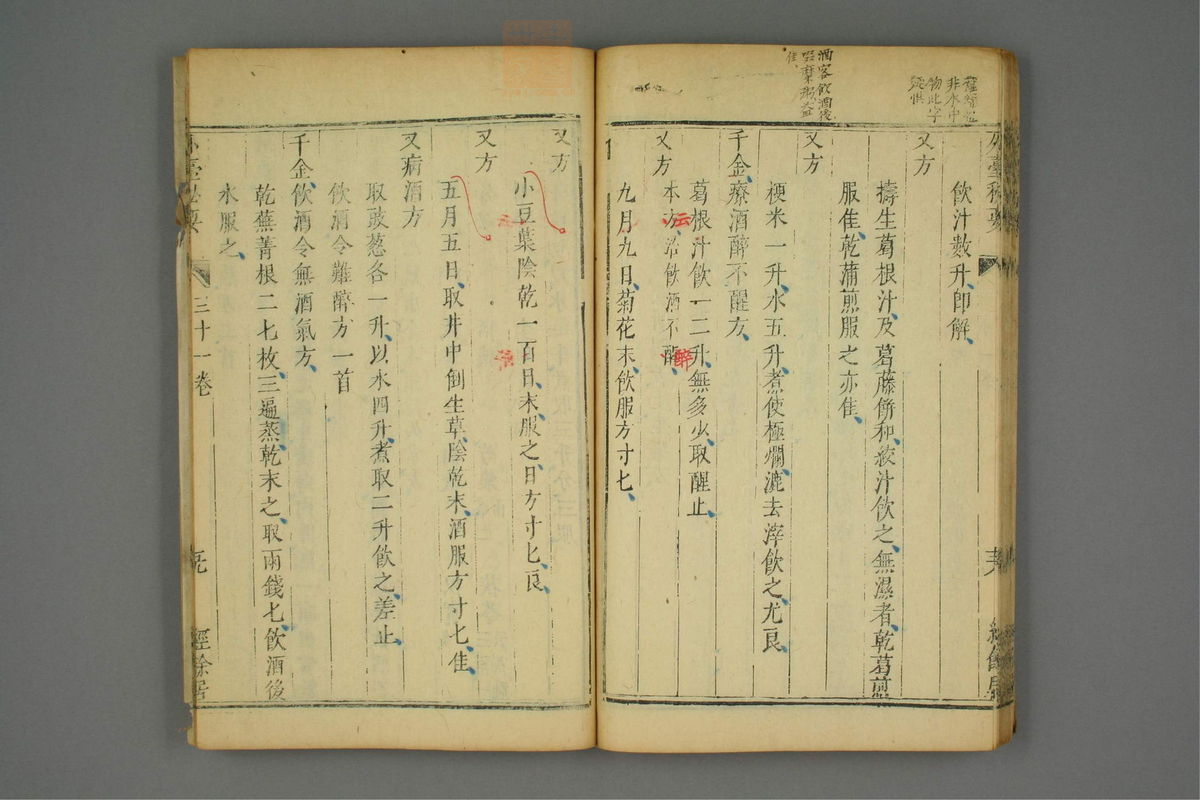 飲汁數升即解
又方
擣生葛根汁及葛藤餅和絞汁飲之無濕者乾葛煎
服佳乾蒲煎服之亦佳
又方
粳米一升水五升煮使極爛漉去滓飲之尤良
千金療酒醉不醒方
葛根汁飲一二升無多少取醒止
又方
本方治飲酒不醉
云
醉
九月九日菊花末飲服方寸匕
酒客飲酒後
佳
非本中
又方
小豆葉陰乾一百日末服之日方寸匕良
又方
五月五日取井中倒生草陰乾末酒服方寸匕佳
又病酒方
取豉葱各一升以水四升煮取二升飲之差止
飲酒令難醉方一首
千金飲酒令無酒氣方
乾蕪菁根二七枚三遍蒸乾末之取兩錢匕飲酒後
水服之
外臺秘要
三十一卷
經餘居